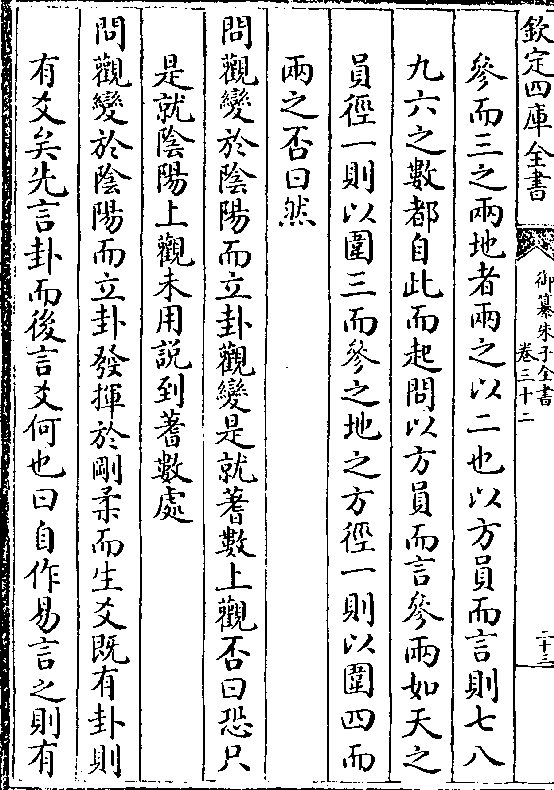 欽定四庫全書
御纂朱子全書
卷三十二
二十三
參而三之兩地者兩之以二也以方員而言則七八
九六之數都自此而起問以方員而言參兩如天之
員徑一則以圍三而參之地之方徑一則以圍四而
兩之否曰然
問觀變於陰陽而立卦觀變是就蓍數上觀否曰恐只
是就陰陽上觀未用說到蓍數處
問觀變於陰陽而立卦發揮於剛柔而生爻既有卦則
有爻矣先言卦而後言爻何也曰自作易言之則有